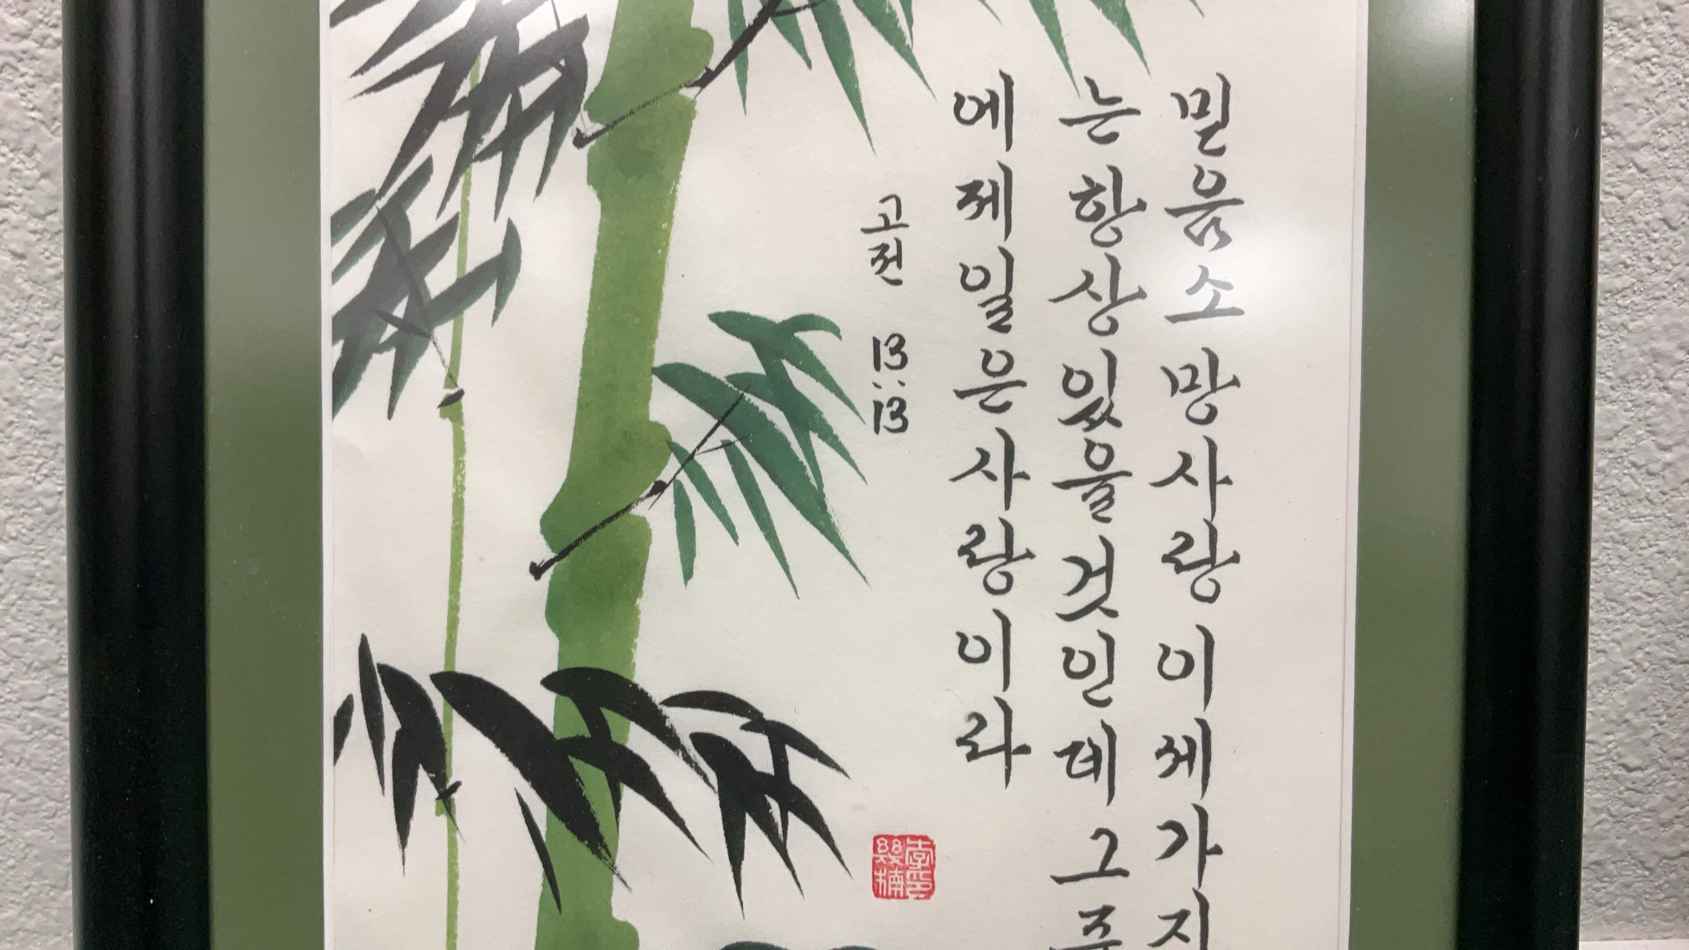 믿음소망사랑이세가지
는항상있을것인데그중
에제일은사랑이라
고전 13:13